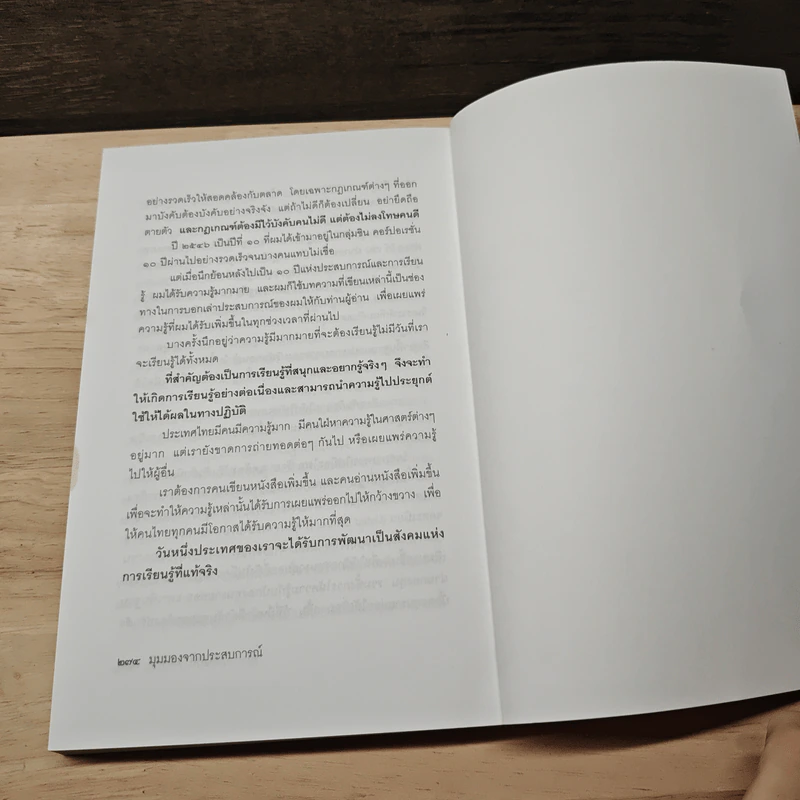 อย่างรวดเร็วให้สอดคล้องกับตลาด โดยเฉพาะกฎเกณฑ์ต่างๆ ที่ออก
มาบังคับต้องบังคับอย่างจริงจัง แต่ถ้าไม่ดีก็ต้องเปลี่ยน อย่ายึดถือ
ตายตัว และกฎเกณฑ์ต้องมีไว้บังคับคนไม่ดี แต่ต้องไม่ลงโทษคนดี
ปี ๒๕๔๖ เป็นปีที่ ๑๐ ที่ผมได้เข้ามาอยู่ในกลุ่มชิน คอร์ปอเรชั่น
๑๐ ปีผ่านไปอย่างรวดเร็วจนบางคนแทบไม่เชื่อ
แต่เมื่อนึกย้อนหลังไปเป็น ๑๐ ปีแห่งประสบการณ์และการเรียน
รู้ ผมได้รับความรู้มากมาย และผมก็ใช้บทความที่เขียนเหล่านี้เป็นช่อง
ทางในการบอกเล่าประสบการณ์ของผมให้กับท่านผู้อ่าน เพื่อเผยแพร่
ความรู้ที่ผมได้รับเพิ่มขึ้นในทุกช่วงเวลาที่ผ่านไป
บางครั้งนึกอยู่ว่าความรู้มีมากมายที่จะต้องเรียนรู้ไม่มีวันที่เรา
จะเรียนรู้ได้ทั้งหมด
ที่สำคัญต้องเป็นการเรียนรู้ที่สนุกและอยากรู้จริงๆ จึงจะทำ
ให้เกิดการเรียนรู้อย่างต่อเนื่องและสามารถนำความรู้ไปประยุกต์
ใช้ให้ได้ผลในทางปฏิบัติ
ประเทศไทยมีคนมีความรู้มาก มีคนใฝ่หาความรู้ในศาสตร์ต่างๆ
อยู่มาก แต่เรายังขาดการถ่ายทอดต่อๆ กันไป หรือเผยแพร่ความรู้
ไปให้ผู้อื่น
เราต้องการคนเขียนหนังสือเพิ่มขึ้น และคนอ่านหนังสือเพิ่มขึ้น
เพื่อจะทำให้ความรู้เหล่านั้นได้รับการเผยแพร่ออกไปให้กว้างขวาง เพื่อ
ให้คนไทยทุกคนมีโอกาสได้รับความรู้ให้มากที่สุด
วันหนึ่งประเทศของเราจะได้รับการพัฒนาเป็นสังคมแห่ง
การเรียนรู้ที่แท้จริง
๒๗๔ มุมมองจากประสบการณ์